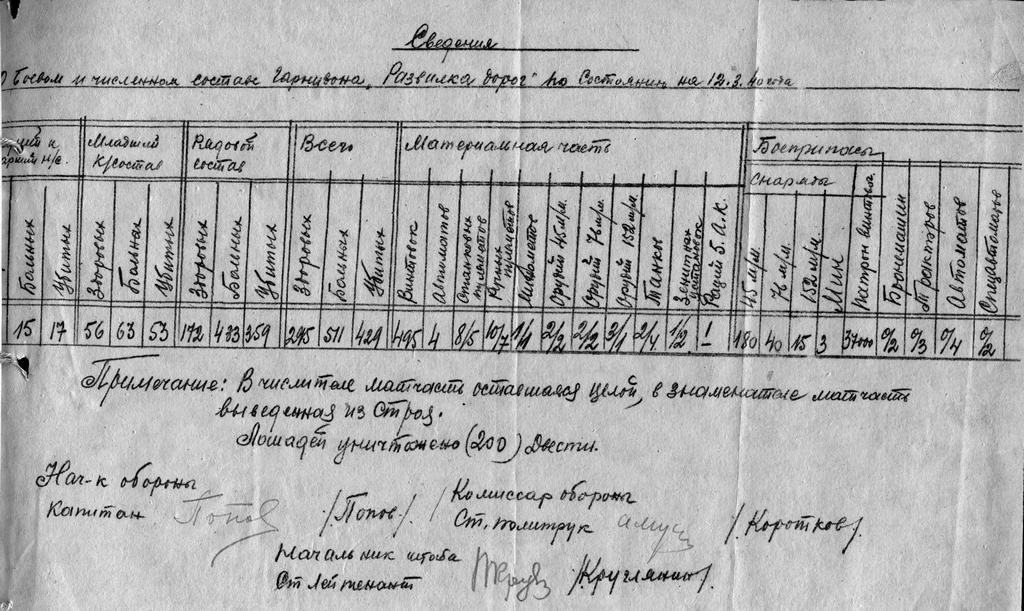 Сведения
О боевом и численном составе Гарнизона "Развилка дорог" по состоянию на 12.3.40 года
Младший к/состав Рядовой состав Всего Материальная часть Боеприпасы
снаряды
Больных Убитых Здоровых Больных Убитых Здоровых Больных Убитых Здоровых Больных Убитых Винтовок Автоматов Станковых пулеметов Ручных пулеметов Минометов Орудий 45 м/м Орудий 76 м/м Орудий 152 м/м Танков Зенитных установок Раций 5.А.К. 45 м/м 76 м/м. 152 м/м. Мин Патрон винтов Бронемашин Тракторов Автоматов
15 17 56 63 53 172 433 359 295 511 429 495 4 8/5 10/7 1/1 2/2 2/2 3/1 2/4 1/2 180 40 15 3 37000 0/2 0/3 0/4 0/2
Примечание: В числителе матчасть оставшаяся целой, в знаменателе матчасть
выведенная из строя.
Лошадей уничтожено (200) Двести.
Нач-к обороны
Капитан Попов /Попов/
Комиссар обороны
Ст. политрук /Коротков/.
Начальник штаба
Ст Лейтенант